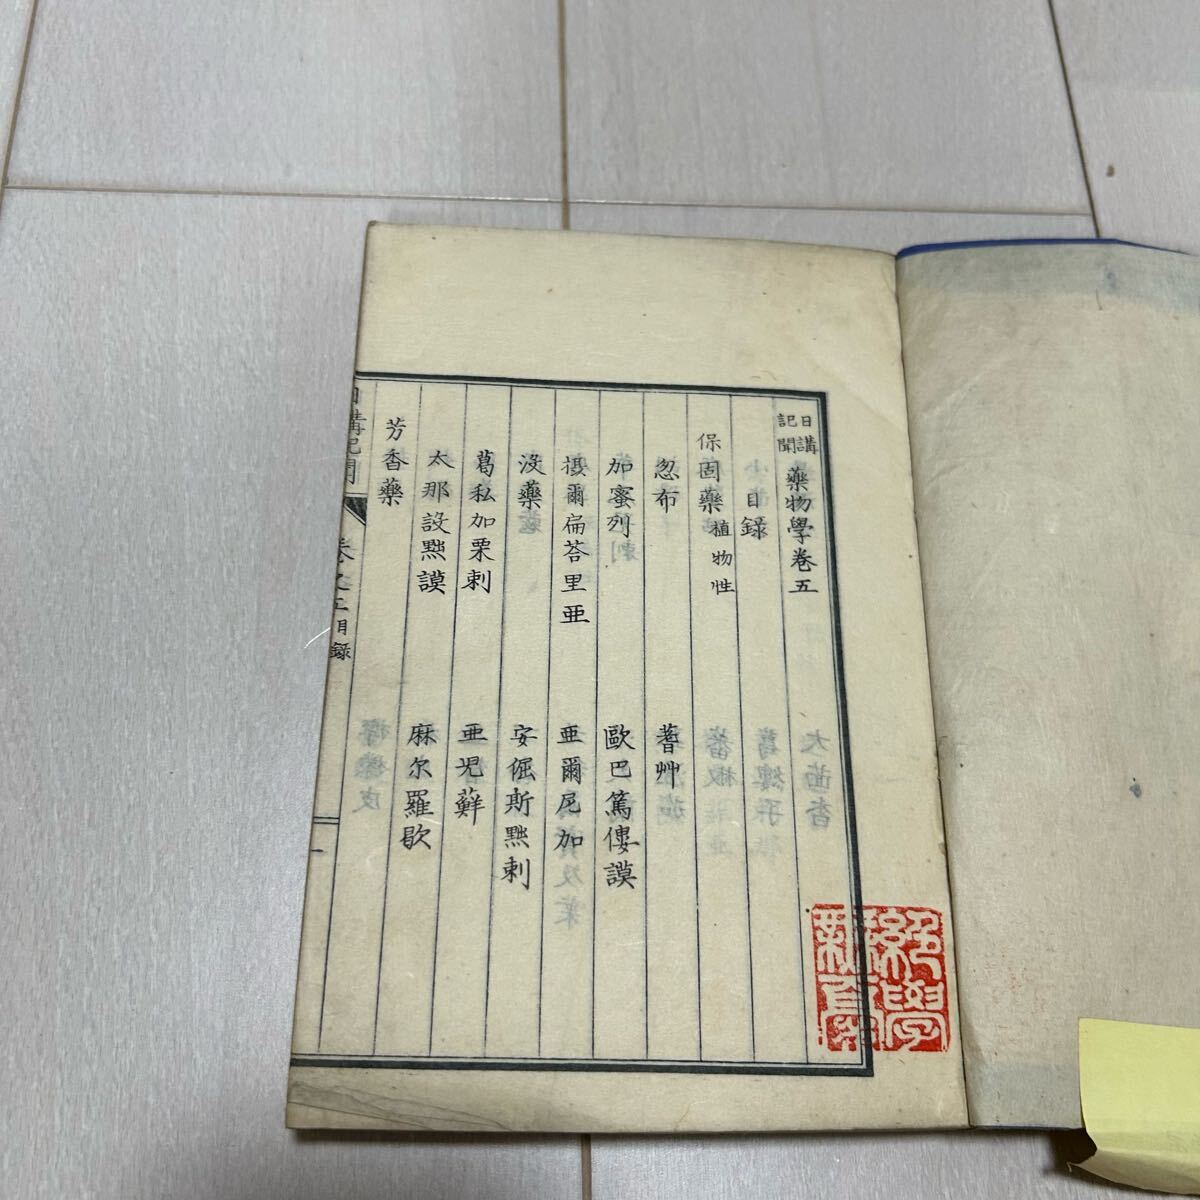 日講記聞 藥物學卷五
目録
保固藥 植物性
忽布 蓍艸
加蜜列 歐巴篤僂謨
擾爾扁荅里亜 亜爾尼加
没藥 安倔斯默剌
葛私加栗剌 亜児蘚
太那設默謨 麻尓羅歇
芳香藥
日講記聞 卷之五目録 一